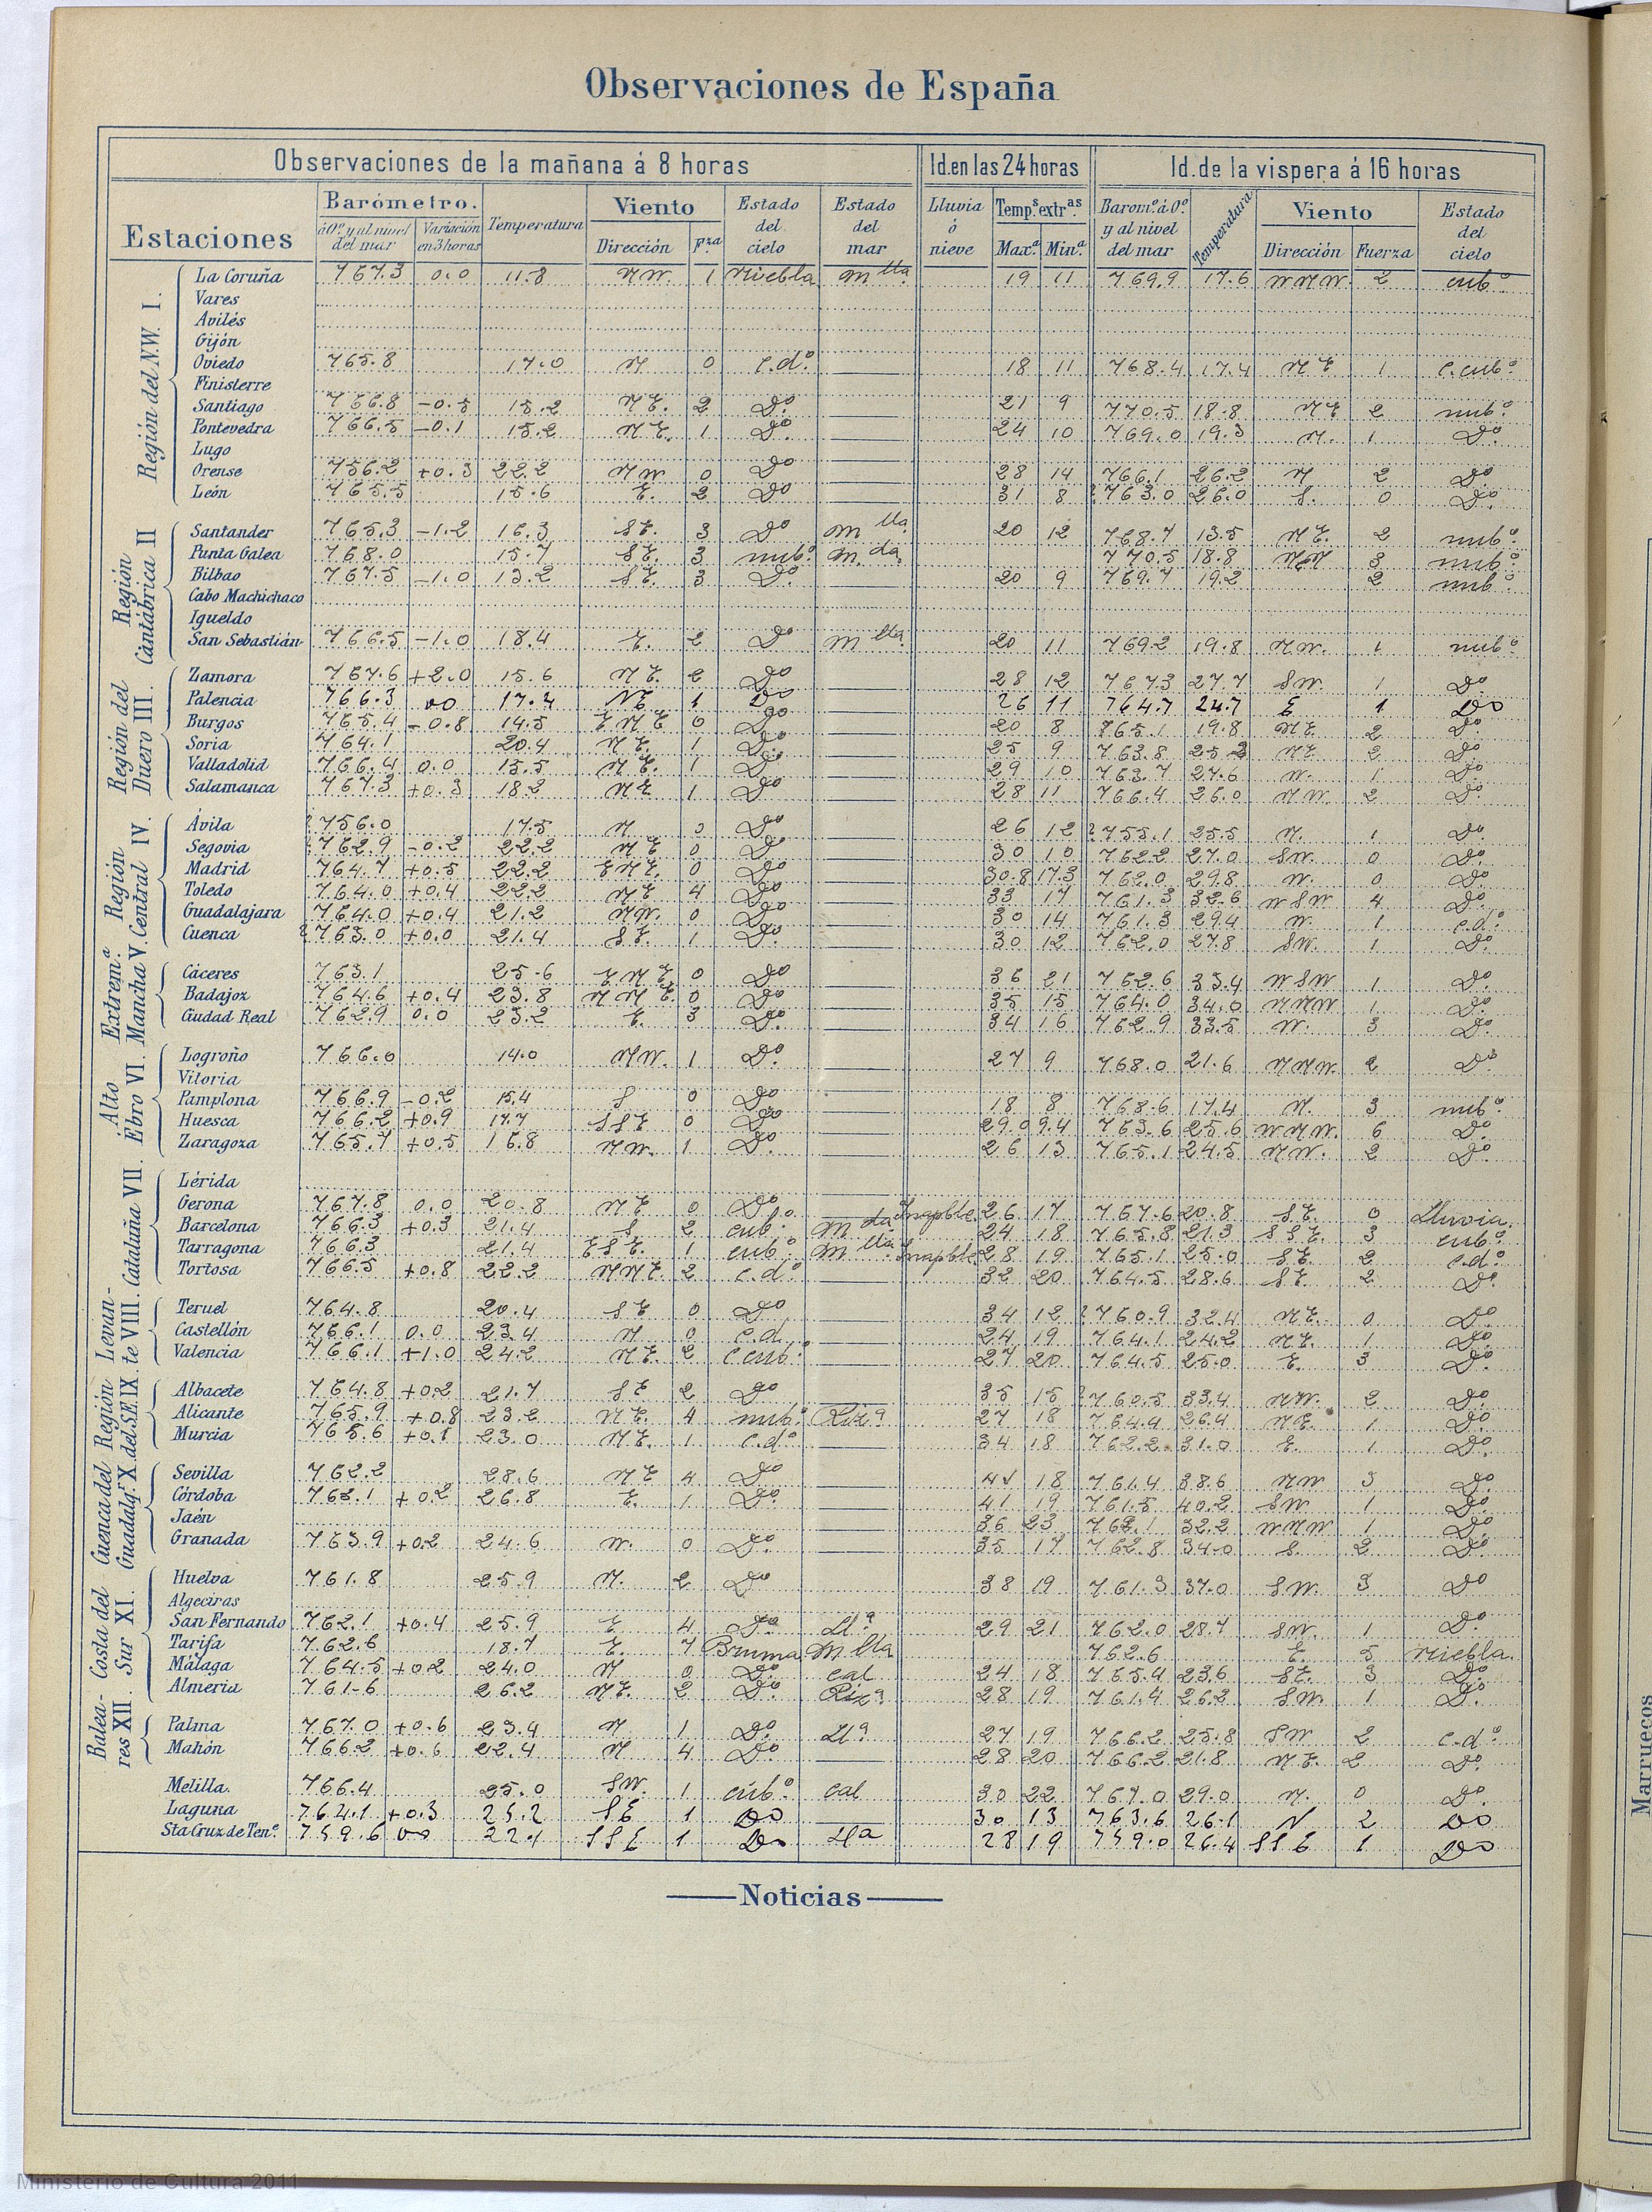 Observaciones de España
Observaciones de la mañana á 8 horas Id. en las 24 horas Id. de la vispera á 16 horas
Estaciones Barómetro. Temperatura Viento Estado del cielo Estado del mar Lluvia ó nieve Temp.s extr.as Barom.o á 0o. y al nivel del mar Temperatura Viento Estado del cielo
á 0o. y al nivel del mar Variación en 3 horas Dirección F.za Max.a Min.a Dirección Fuerza
Región del N.W. I.
La Coruña 767.3 0.0 11.8 NW. 1 Niebla M lla 19 11 769.9 17.6 WNW. 2 cub.o
Vares
Avilés
Gijón
Oviedo 765.8 17.0 N 0 C.do. 18 11 768.4 17.4 NE 1 C.cub.o
Finisterre
Santiago 766.8 -0.5 15.2 NE. 2 Do. 21 9 770.5 18.8 NE 2 nub.o
Pontevedra 766.5 -0.1 15.2 NE. 1 Do. 24 10 769.0 19.3 N. 1 Do.
Lugo
Orense 756.2 +0.3 22.2 NW 0 Do 28 14 766.1 26.2 N 2 Do.
León 765.5 15.6 E. 2 Do 31 8 ?763.0 26.0 S. 0 Do.
Región Cantábrica II
Santander 765.3 -1.2 16.3 SE. 3 Do M lla. 20 12 768.7 13.5 NE. 2 nub.o
Punta Galea 768.0 15.7 SE. 3 nub.o M. da. 770.5 18.8 3 nub.o
Bilbao 767.5 -1.0 13.2 SE. 3 Do. 20 9 769.7 19.2 2 nub.o
Cabo Machichaco
Igueldo
San Sebastián 766.5 -1.0 18.4 E. 2 Do M lla. 20 11 769.2 19.8 NW. 1 nub.o
Región del Duero III.
Zamora 767.6 +2.0 15.6 NE. 2 Do 28 12 767.3 27.7 SW. 1 Do.
Palencia 766.3 00 17.2 NE 1 Do 26 11 764.7 24.7 E 1 Do
Burgos 765.4 -0.8 14.5 ENE 0 Do 20 8 765.1 19.8 NE. 2 Do.
Soria 764.1 20.4 NE. 1 Do. 25 9 763.8 25.3 NE 2 Do
Valladolid 766.4 0.0 15.5 NE. 1 Do. 29 10 763.7 27.6 W. 1 Do
Salamanca 767.3 +0.3 18.2 NE 1 Do 28 11 766.4 26.0 NW. 2 Do.
Región Central IV.
Ávila ?756.0 17.5 N Do 26 12 ?755.1 25.5 N. 1 Do
Segovia ?762.9 -0.2 22.2 NE 0 Do 30 10 762.2 27.0 SW. 0 Do.
Madrid 764.7 +0.5 22.2 ENE. 0 Do 30.8 17.3 762.0 29.8 W. 0 Do.
Toledo 764.0 +0.4 22.2 NE 4 Do 33 17 761.3 32.6 WSW 4 Do
Guadalajara 764.0 +0.4 21.2 NW. 0 Do 30 14 761.3 29.4 W. 1 C.do.
Cuenca ?763.0 +0.0 21.4 SE. 1 Do. 30 12 762.0 27.8 SW. 1 Do.
Extrem.a Mancha V.
Cáceres 763.1 25.6 ENE 0 Do 36 21 762.6 33.4 WSW 1 Do.
Badajoz 764.6 +0.4 23.8 NNE. 0 Do 35 15 764.0 34.0 NNW 1 Do.
Ciudad Real 762.9 0.0 23.2 E. 3 Do. 34 16 762.9 33.5 W. 3 Do.
Alto Ebro VI.
Logroño 766.0 14.0 NW. 1 Do. 27 9 768.0 21.6 NNW. 2 Do.
Vitoria
Pamplona 766.9 -0.2 15.4 S 0 Do 18 8 768.6 17.4 N. 3 nub.o
Huesca 766.2 +0.9 17.7 SSE 0 Do 29.0 9.4 763.6 25.6 WNW. 6 Do.
Zaragoza 765.7 +0.5 16.8 NW. 1 Do. 26 13 765.1 24.5 NW. 2 Do.
Cataluña VII.
Lérida
Gerona 767.8 0.0 20.8 NE 0 Do. Inapble. 26 17 767.6 20.8 SE. 0 Lluvia.
Barcelona 766.3 +0.3 21.4 S 2 cub.o M da. 24 18 765.8 21.3 SSE. 3 cub.o
Tarragona 766.3 21.4 ESE. 1 cub.o M lla. Inapble. 28 19 765.1 25.0 SE. 2 C.do.
Tortosa 766.5 +0.8 22.2 NNE. 2 C.do. 32 20 764.5 28.6 SE. 2 Do.
Levante VIII.
Teruel 764.8 20.4 SE 0 Do 34 12 ?760.9 32.4 NE. 0 Do.
Castellón 766.1 0.0 23.4 N 0 C.d. 24 19 764.1 24.2 NE. 1 Do.
Valencia 766.1 +1.0 24.2 NE. 2 C cub.o 27 20 764.5 25.0 E. 3 Do.
Región del SE IX
Albacete 764.8 +0.2 21.7 SE 2 Do 35 15 ?760.5 33.4 NW. 2 Do.
Alicante 765.9 +0.8 23.2 NE. 4 nub.o Riz.a 27 18 764.4 26.4 NE. 1 Do.
Murcia 765.6 +0.1 23.0 NE. 1 C.do. 34 18 762.2 31.0 E. 1 Do.
Cuenca del Guadalq.r X.
Sevilla 762.2 28.6 NE 4 Do 41 18 761.4 38.6 NW 3 Do.
Córdoba 763.1 +0.2 26.8 E. 1 Do. 41 19 761.5 40.2 SW. 1 Do
Jaén 36 23 762.1 32.2 WNW 1 Do
Granada 763.9 +0.2 24.6 W. 0 Do. 35 17 762.8 34.0 S. 2 Do.
Costa del Sur XI.
Huelva 761.8 25.9 N. 2 Do 38 19 761.3 37.0 SW. 3 Do
Algeciras
San Fernando 762.1 +0.4 25.9 E 4 Do Ll.a 29 21 762.0 28.7 SW. 1 Do.
Tarifa 762.6 18.7 E. 7 Bruma M lla 762.6 E. 5 Niebla.
Málaga 764.5 +0.2 24.0 N 0 Do. cal 24 18 765.4 23.6 SE. 3 Do.
Almeria 761.6 26.2 NE. 2 Do. Riz.a 28 19 761.4 26.2 SW. 1 Do.
Baleares XII.
Palma 767.0 +0.6 23.4 N 1 Do. Ll.a 27 19 766.2 25.8 SW 2 C.do.
Mahón 766.2 +0.6 22.4 N 4 Do 28 20 766.2 21.8 NE. 2 Do.
Melilla. 766.4 25.0 SW. 1 cub.o cal 30 22 767.0 29.0 N. 0 Do.
Laguna 764.1 +0.3 25.2 SE 1 Do 30 13 763.6 26.1 N 2 Do
Sta Cruz de Ten.e 759.6 00 22.1 SSE 1 Do Lla 28 19 759.0 26.4 SSE 1 Do
Noticias
Marruecos
Ministerio de Cultura 2011